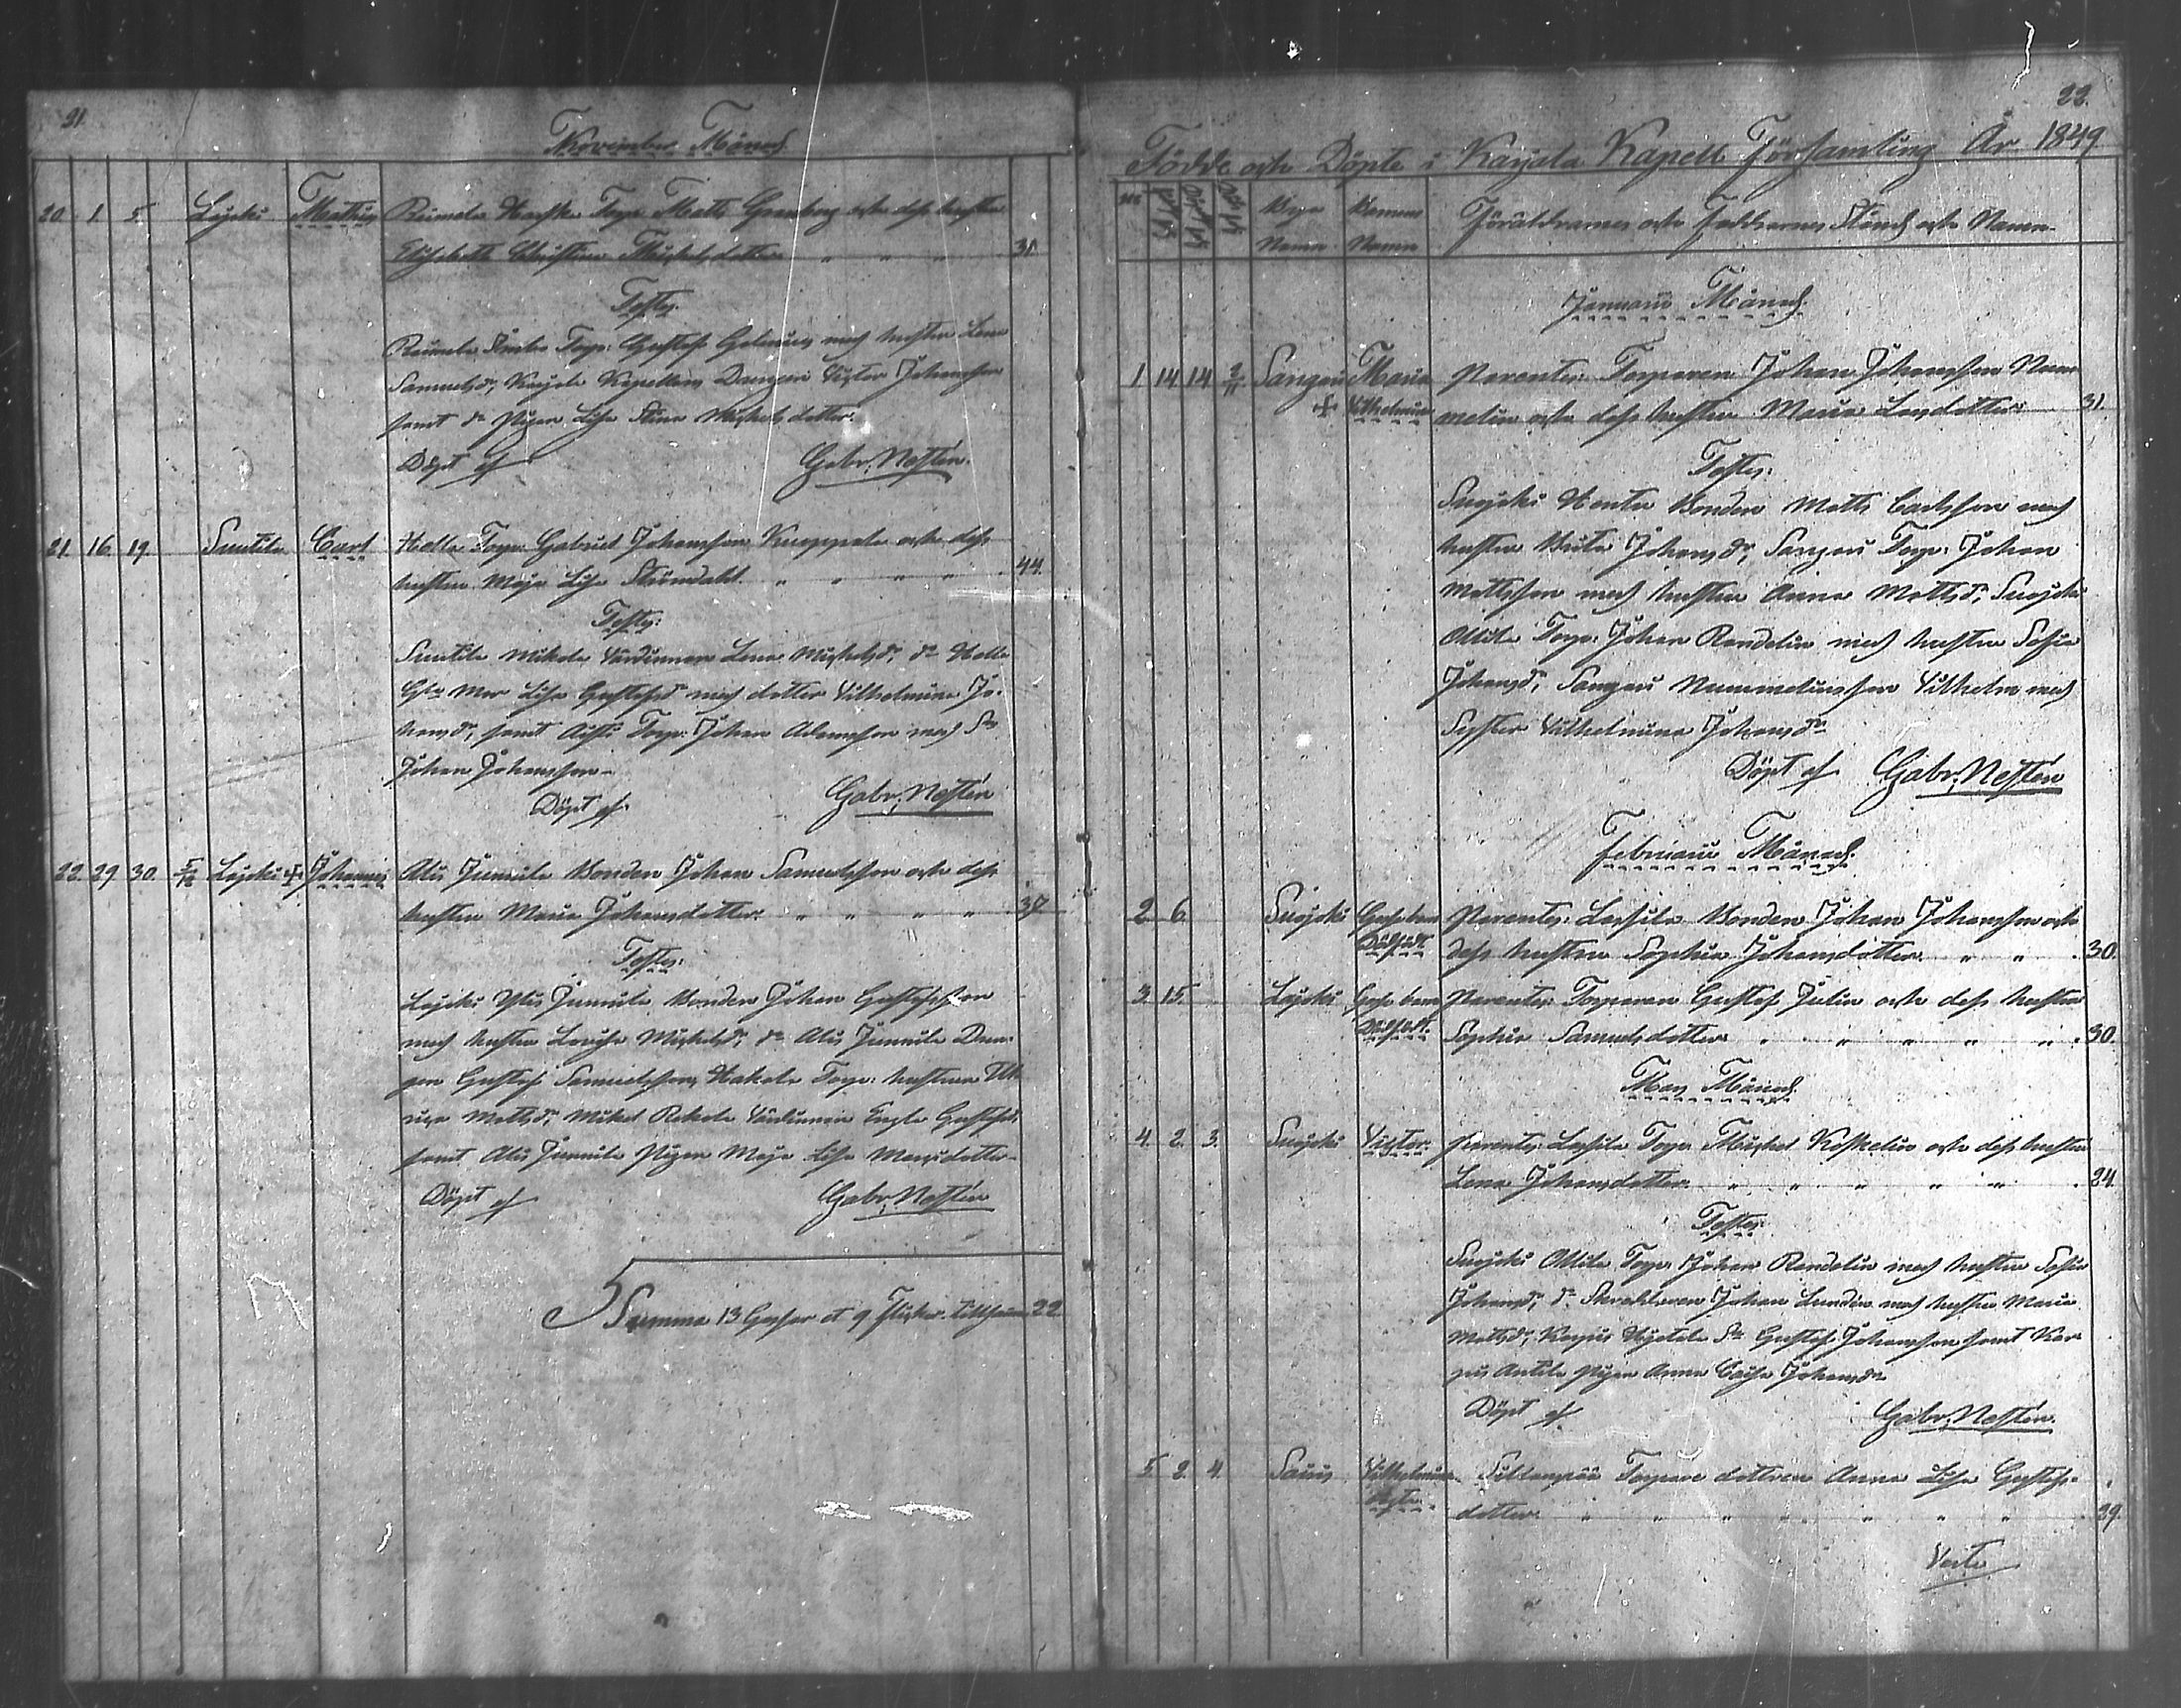 21.
November Månad
20. 1. 5. Lejski Mathias Reimela Torp. Matts Granberg och dess hustru
Elisabeth Christina Michelsdotter " " " 31.
Testes:
Reimela Torp: Gustaf Gelenius med hustru Lena
Samuelsdr, Karjala Kapellans Drengen Victor Johansson
samt do Pigan Lisa Stina Michelsdotter.
Döpt af Gabr. Nestén.
21. 16. 19. Suutila Carl Halla Torp. Gabriel Johansson Kuoppala och dess
hustru Maja Lisa Strömdahl. " " " " 44.
Testes:
Suutila Mikola Värdinnan Lena Michelsdr, do Halla
Mor Lisa Gustafsdr med dotter Vilhelmina Jo-
hansdr, samt Torp: Johan Adamsson med Sn
Johan Johansson.
Döpt af Gabr. Nestén
22. 29. 30. 5/12 Lejski + Johannes Ali Junnila Bonden Johan Samuelsson och dess
hustru Maria Johansdotter. " " " " 37.
Testes:
Lejski Yli Junnila Bonden Johan Gustafsson
med hustru Lovisa Michelsdr, do Ali Junnila Dren-
gen Gustaf Samuelsson, Hakala Torp: hustrun Ul-
rica Mattsdr, Mikol Rekola Värdinnan Engla Gustafsdr
samt Ali Junnila Pigan Maja Lisa Mansdotter.
Döpt af Gabr. Nestén
Summa 13 Gossar et 9 Flickor. tillsammans 22
22.
Födde och Döpte i Karjala Kapell Församling År 1849
No Född Döpt Död Byns Namn Barnens Namn Föräldrarnes och Faddrarnes Stånd och Namn.
Januarii Månad.
1 14. 14. 2/11 Sangais + Maria Vilhelmina Parentes: Torparen Johan Johansson Num-
melin och dess hustru Maria Larsdotter 31.
Testes:
Suojoki Bonden Matts Carlsson med
hustru Brita Johansdr, Sangais Torp: Johan
Mattsson med hustru Anna Mattsdr, Suojoki
Ollila Torp: Johan Randelin med hustru Sofia
Johansdr, Sangais Nummelins Son Vilhelm med
Syster Vilhelmina Johansdr
Döpt af Gabr. Nestén
Februarii Månad.
2. 6. Suojoki Gosse barn Dödfödt. Parentes: Lassila Bonden Johan Johansson och
dess hustru Sophia Johansdotter. " " 30.
3. 15. Lejski Gosse barn Dödfödt. Parentes: Torparen Gustaf Julin och dess hustru
Sophia Samuelsdotter " " " " " 30.
Maj Månad.
4. 2. 3. Suojoki Victor. Parentes Lassila Torp. Michel Koskelin och dess hustru
Lena Johansdotter. " " " " " 24.
Testes:
Suojoki Ollila Torp. Johan Randelin med hustru Sofia
Johansdr, do Skräddaren Johan Lundén med hustru Maria
Mattsdr, Karjus Sn Gustaf Johansson samt Kar-
jus Anttila Pigan Anna Caisa Johansdr
Döpt af Gabr. Nestén.
5. 2. 4. Saus Vilhelmina Torpare dottren Anna Lisa Gustafs-
dotter " " " " " " " 29.
Verte